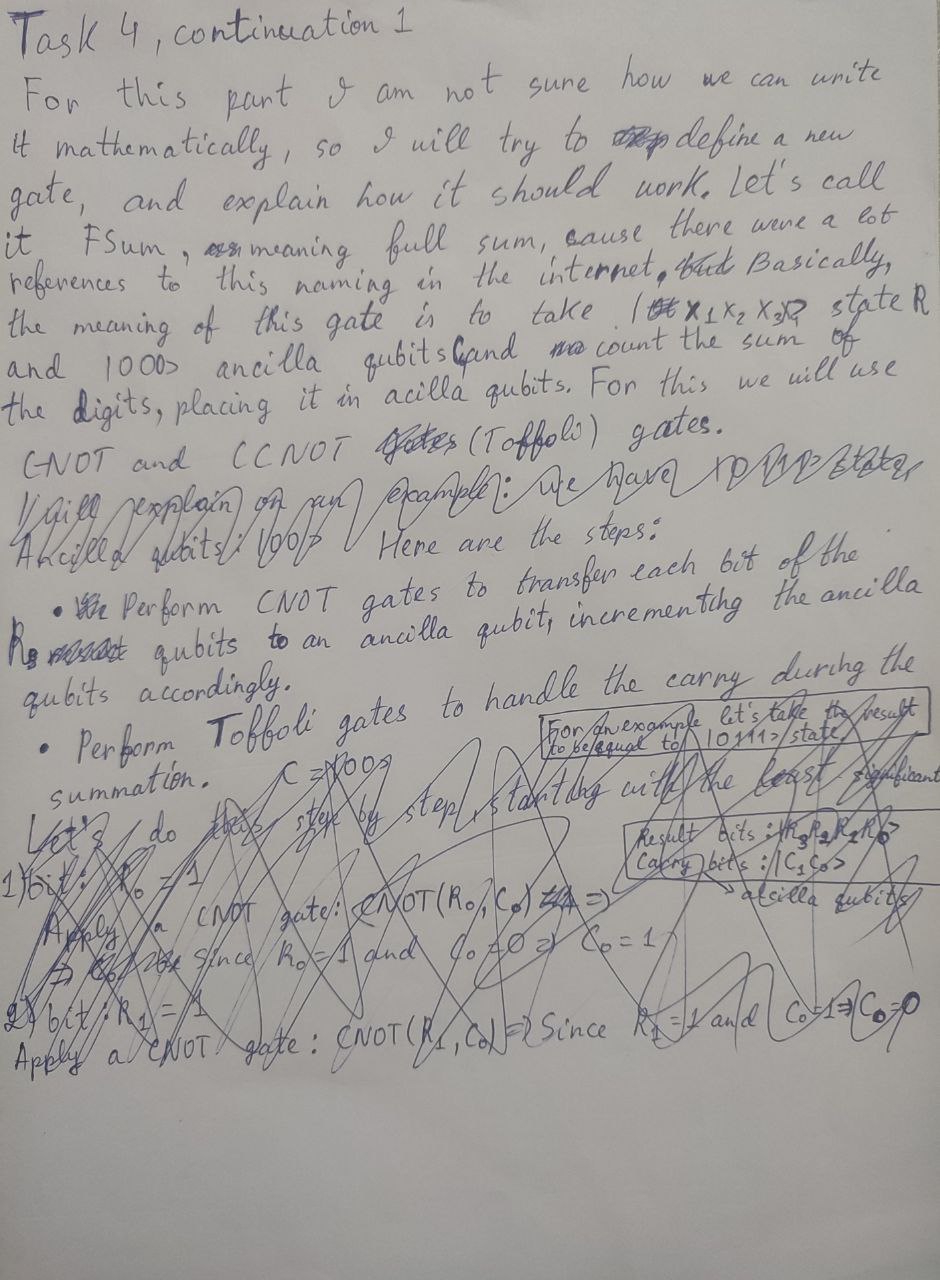 Task 4, continuation 1
For this part I am not sure how we can write
it mathematically, so I will try to define a new
gate, and explain how it should work. Let's call
it FSum, meaning full sum, cause there were a lot
references to this naming in the internet. Basically,
the meaning of this gate is to take |x₁x₂x₃x₂ state R
and |00> ancilla qubits (and count the sum of
the digits, placing it in acilla qubits. For this we will use
CNOT and CCNOT (Toffoli) gates.
I will explain on an example: we have state,
Ancilla qubits: |00> Here are the steps:
• Perform CNOT gates to transfer each bit of the
R qubits to an ancilla qubit, incrementing the ancilla
qubits accordingly.
• Perform Toffoli gates to handle the carry during the
summation.
For an example let's take the result
to be equal to |0111> state.
C = |00>
Let's do this step by step, starting with the least significant
Result bits: |R₃R₂R₁R₀>
Carry bits: |C₁C₀>
alsilla qubits
1) bit: R₀ = 1
Apply a CNOT gate: CNOT(R₀, C₀) =>
=> since R₀=1 and C₀=0 => C₀=1
2) bit: R₁ = 1
Apply a CNOT gate: CNOT(R₁, C₀) => Since R₁=1 and C₀=1 => C₀=0